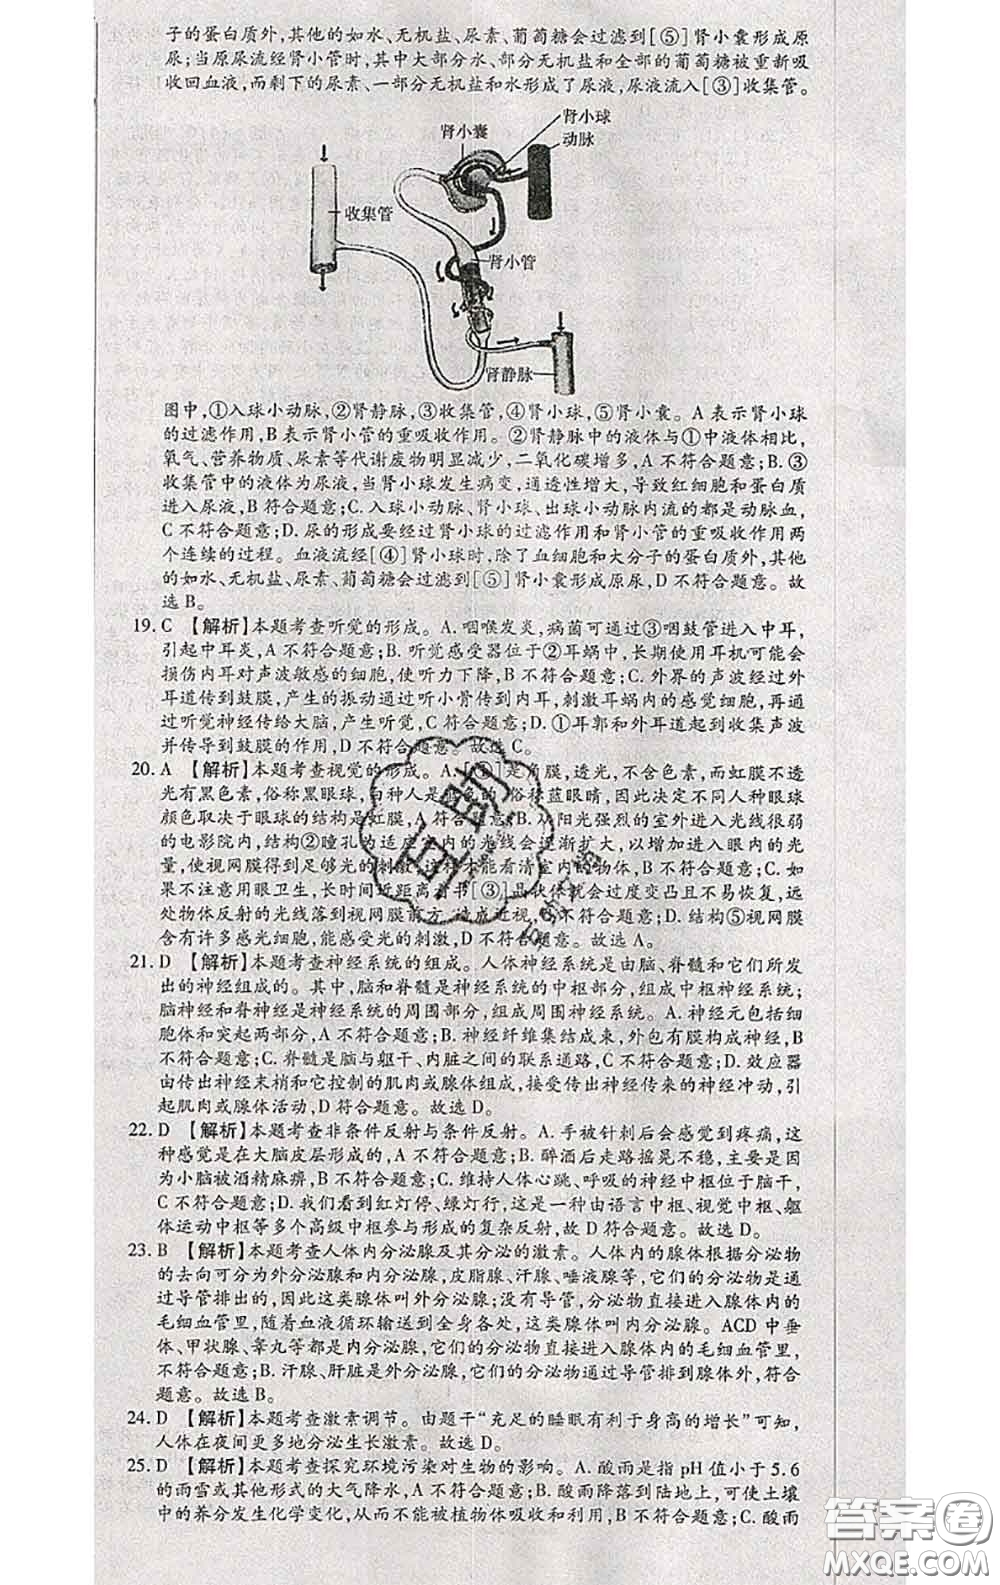 子的蛋白质外,其他的如水、无机盐、尿素、葡萄糖会过滤到[⑤]肾小囊形成原
尿;当原尿流经肾小管时,其中大部分水、部分无机盐和全部的葡萄糖被重新吸
收回血液,而剩下的尿素、一部分无机盐和水形成了尿液,尿液流入[③]收集管。
肾小球
肾小囊
动脉
收集管
肾小管
肾静脉
图中,①入球小动脉,②肾静脉,③收集管,④肾小球,⑤肾小囊。A表示肾小球
的过滤作用,B表示肾小管的重吸收作用。②肾静脉中的液体与①中液体相比,
氧气、营养物质、尿素等代谢废物明显减少,二氧化碳增多,A不符合题意;B.③
收集管中的液体为尿液,当肾小球发生病变,通透性增大,导致红细胞和蛋白质
进入尿液,B符合题意;C.入球小动脉、肾小球、出球小动脉内流的都是动脉血,
C不符合题意;D.尿的形成要经过肾小球的过滤作用和肾小管的重吸收作用两
个连续的过程。血液流经[④]肾小球时,除了血细胞和大分子的蛋白质外,其他
的如水、无机盐、尿素、葡萄糖会过滤到[⑤]肾小囊形成原尿,D不符合题意。故
选B。
19.C 【解析】本题考查听觉的形成。A.咽喉发炎,病菌可通过③咽鼓管进入中耳,
引起中耳炎,A不符合题意;B.听觉感受器位于②耳蜗中,长期使用耳机可能会
损伤内耳对声波敏感的细胞,使听力下降,B不符合题意;C.外界的声波经过外
耳道传到鼓膜,产生的振动通过听小骨传到内耳,刺激耳蜗内的感觉细胞,再通
过听觉神经传给大脑,产生听觉,C符合题意;D.①耳郭和外耳道起到收集声波
并传导到鼓膜的作用,D不符合题意。故选C。
20.A 【解析】本题考查视觉的形成。A.[①]是角膜,透光,不含色素,而虹膜不透
光有黑色素,俗称黑眼球,白种人是蓝色的,俗称蓝眼睛,因此决定不同人种眼球
颜色取决于眼球的结构是虹膜,A符合题意;B.从阳光强烈的室外进入光线很弱
的电影院内,结构②瞳孔为适应室内的光线会逐渐扩大,以增加进入眼内的光
量,使视网膜得到足够光的刺激,这样才能看清室内的物体,B不符合题意;C.如
果不注意用眼卫生,长时间近距离看书[③]晶状体就会过度变凸且不易恢复,远
处物体反射的光线落到视网膜前方,造成近视,C不符合题意;D.结构⑤视网膜
含有许多感光细胞,能感受光的刺激,D不符合题意。故选A。
21.D 【解析】本题考查神经系统的组成。人体神经系统是由脑、脊髓和它们所发
出的神经组成的。其中,脑和脊髓是神经系统的中枢部分,组成中枢神经系统;
脑神经和脊神经是神经系统的周围部分,组成周围神经系统。A.神经元包括细
胞体和突起两部分,A不符合题意;B.神经纤维集结成束,外包有膜构成神经,B
不符合题意;C.脊髓是脑与躯干、内脏之间的联系通路,C不符合题意;D.效应器
由传出神经末梢和它控制的肌肉或腺体组成,接受传出神经传来的神经冲动,引
起肌肉或腺体活动,D符合题意。故选D。
22.D 【解析】本题考查非条件反射与条件反射。A.手被针刺后会感觉到疼痛,这
种感觉是在大脑皮层形成的,A不符合题意;B.醉酒后走路摇晃不稳,主要是因为
小脑被酒精麻痹,B不符合题意;C.维持人体心跳、呼吸的神经中枢位于脑干,
C不符合题意;D.我们看到红灯停、绿灯行,这是一种由语言中枢、视觉中枢、躯
体运动中枢等多个高级中枢参与形成的复杂反射,故D符合题意。故选D。
23.B 【解析】本题考查人体内分泌腺及其分泌的激素。人体内的腺体根据分泌物
的去向可分为外分泌腺和内分泌腺,皮脂腺、汗腺、唾液腺等,它们的分泌物是通
过导管排出的,因此这类腺体叫外分泌腺;没有导管,分泌物直接进入腺体内的
毛细血管里,随着血液循环输送到全身各处,这类腺体叫内分泌腺。ACD中垂
体、甲状腺、睾丸等都是内分泌腺,它们的分泌物直接进入腺体内的毛细血管里,
不符合题意;B.汗腺、肝脏是外分泌腺,它们的分泌物通过导管排到腺体外,符合
题意。故选B。
24.D 【解析】本题考查激素调节。由题干“充足的睡眠有利于身高的增长”可知,
人体在夜间更多地分泌生长激素。故选D。
25.D 【解析】本题考查探究环境污染对生物的影响。A.酸雨是指pH值小于5.6
的雨雪或其他形式的大气降水,A不符合题意;B.酸雨降落到陆地上,可使土壤
中的养分发生化学变化,从而不能被植物体吸收和利用,B不符合题意;C.酸雨
互助
答案圈
MXQE.COM